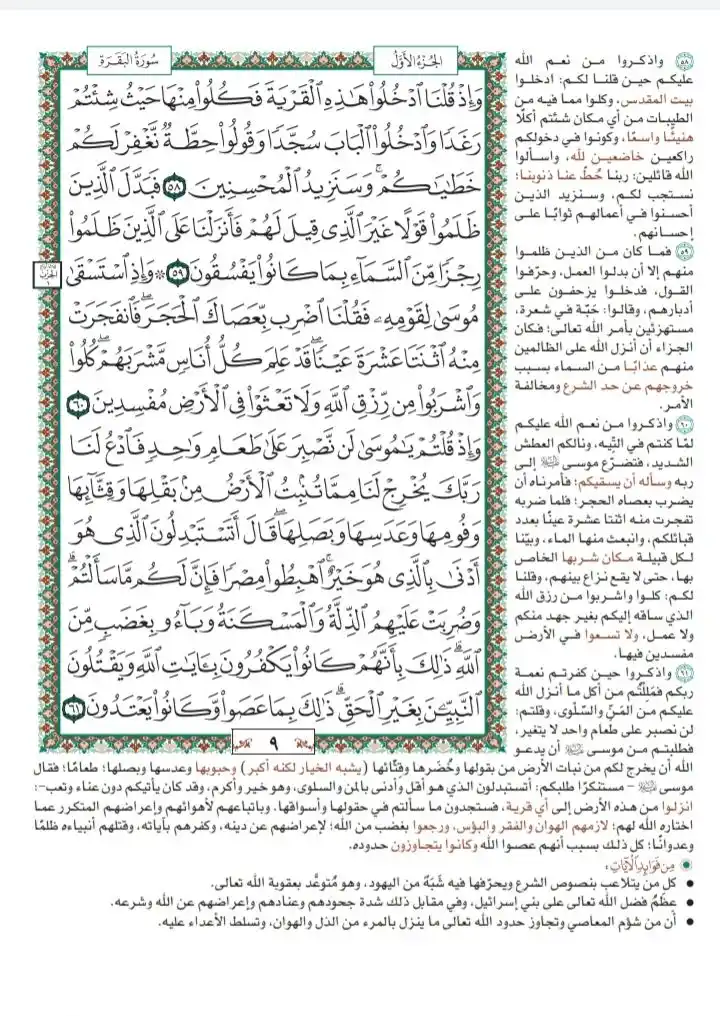 سُورَةُ البَقَرَةِ
الجُزْءُ الأَوَّلُ
وَإِذْ قُلْنَا ٱدْخُلُوا۟ هَـٰذِهِ ٱلْقَرْيَةَ فَكُلُوا۟ مِنْهَا حَيْثُ شِئْتُمْ
رَغَدًا وَٱدْخُلُوا۟ ٱلْبَابَ سُجَّدًا وَقُولُوا۟ حِطَّةٌ نَّغْفِرْ لَكُمْ
خَطَـٰيَـٰكُمْ ۚ وَسَنَزِيدُ ٱلْمُحْسِنِينَ ٥٨ فَبَدَّلَ ٱلَّذِينَ
ظَلَمُوا۟ قَوْلًا غَيْرَ ٱلَّذِى قِيلَ لَهُمْ فَأَنزَلْنَا عَلَى ٱلَّذِينَ ظَلَمُوا۟
رِجْزًا مِّنَ ٱلسَّمَآءِ بِمَا كَانُوا۟ يَفْسُقُونَ ٥٩ ۞ وَإِذِ ٱسْتَسْقَىٰ
مُوسَىٰ لِقَوْمِهِۦ فَقُلْنَا ٱضْرِب بِّعَصَاكَ ٱلْحَجَرَ ۖ فَٱنفَجَرَتْ
مِنْهُ ٱثْنَتَا عَشْرَةَ عَيْنًا ۖ قَدْ عَلِمَ كُلُّ أُنَاسٍ مَّشْرَبَهُمْ ۖ كُلُوا۟
وَٱشْرَبُوا۟ مِن رِّزْقِ ٱللَّهِ وَلَا تَعْثَوْا۟ فِى ٱلْأَرْضِ مُفْسِدِينَ ٦٠
وَإِذْ قُلْتُمْ يَـٰمُوسَىٰ لَن نَّصْبِرَ عَلَىٰ طَعَامٍ وَٰحِدٍ فَٱدْعُ لَنَا
رَبَّكَ يُخْرِجْ لَنَا مِمَّا تُنۢبِتُ ٱلْأَرْضُ مِنۢ بَقْلِهَا وَقِثَّآئِهَا
وَفُومِهَا وَعَدَسِهَا وَبَصَلِهَا ۖ قَالَ أَتَسْتَبْدِلُونَ ٱلَّذِى هُوَ
أَدْنَىٰ بِٱلَّذِى هُوَ خَيْرٌ ۚ ٱهْبِطُوا۟ مِصْرًا فَإِنَّ لَكُم مَّا سَأَلْتُمْ ۗ
وَضُرِبَتْ عَلَيْهِمُ ٱلذِّلَّةُ وَٱلْمَسْكَنَةُ وَبَآءُو بِغَضَبٍ مِّنَ
ٱللَّهِ ۗ ذَٰلِكَ بِأَنَّهُمْ كَانُوا۟ يَكْفُرُونَ بِـَٔايَـٰتِ ٱللَّهِ وَيَقْتُلُونَ
ٱلنَّبِيِّـۧنَ بِغَيْرِ ٱلْحَقِّ ۗ ذَٰلِكَ بِمَا عَصَوا۟ وَّكَانُوا۟ يَعْتَدُونَ ٦١
٩
٥٨ واذكروا من نعم الله
عليكم حين قلنا لكم: ادخلوا
بيت المقدس، وكلوا مما فيه من
الطيبات من أي مكان شئتم أكلًا
هنيئًا واسعًا، وكونوا في دخولكم
راكعين خاضعين لله، واسألوا
الله قائلين: ربنا حُطّ عنا ذنوبنا؛
نستجب لكم، وسنزيد الذين
أحسنوا في أعمالهم ثوابًا على
إحسانهم.
٥٩ فما كان من الذين ظلموا
منهم إلا أن بدلوا العمل، وحرّفوا
القول، فدخلوا يزحفون على
أدبارهم، وقالوا: حَبّة في شعرة،
مستهزئين بأمر الله تعالى؛ فكان
الجزاء أن أنزل الله على الظالمين
منهم عذابًا من السماء بسبب
خروجهم عن حد الشرع ومخالفة
الأمر.
٦٠ واذكروا من نعم الله عليكم
لمّا كنتم في التِّيه، ونالكم العطش
الشديد، فتضرّع موسى ﷺ إلى
ربه وسأله أن يسقيكم؛ فأمرناه أن
يضرب بعصاه الحجر؛ فلما ضربه
تفجرت منه اثنتا عشرة عينًا بعدد
قبائلكم، وانبعث منها الماء، وبيّنا
لكل قبيلة مكان شربها الخاص
بها، حتى لا يقع نزاع بينهم، وقلنا
لكم: كلوا واشربوا من رزق الله
الذي ساقه إليكم بغير جهد منكم
ولا عمل، ولا تسعوا في الأرض
مفسدين فيها.
٦١ واذكروا حين كفرتم نعمة
ربكم فمَلِلْتُم من أكل ما أنزل الله
عليكم من المَنِّ والسَّلْوى، وقلتم:
لن نصبر على طعام واحد لا يتغير،
فطلبتم من موسى ﷺ أن يدعو
الله أن يخرج لكم من نبات الأرض من بقولها وخُضَرها وقثّائها (يشبه الخيار لكنه أكبر) وحبوبها وعدسها وبصلها؛ طعامًا؛ فقال
موسى ﷺ - مستنكرًا طلبكم: أتستبدلون الذي هو أقل وأدنى بالمن والسلوى، وهو خير وأكرم، وقد كان يأتيكم دون عناء وتعب-:
انزلوا من هذه الأرض إلى أي قرية، فستجدون ما سألتم في حقولها وأسواقها. وباتباعهم لأهوائهم وإعراضهم المتكرر عما
اختاره الله لهم؛ لازمهم الهوان والفقر والبؤس، ورجعوا بغضب من الله؛ لإعراضهم عن دينه، وكفرهم بآياته، وقتلهم أنبياءه ظلمًا
وعدوانًا؛ كل ذلك بسبب أنهم عصوا الله وكانوا يتجاوزون حدوده.
مِن فَوَائِدِ الآيَاتِ:
● كل من يتلاعب بنصوص الشرع ويحرّفها فيه شَبَهٌ من اليهود، وهو مُتوعَّد بعقوبة الله تعالى.
● عظَمُ فضل الله تعالى على بني إسرائيل، وفي مقابل ذلك شدة جحودهم وعنادهم وإعراضهم عن الله وشرعه.
● أن من شؤم المعاصي وتجاوز حدود الله تعالى ما ينزل بالمرء من الذل والهوان، وتسلط الأعداء عليه.